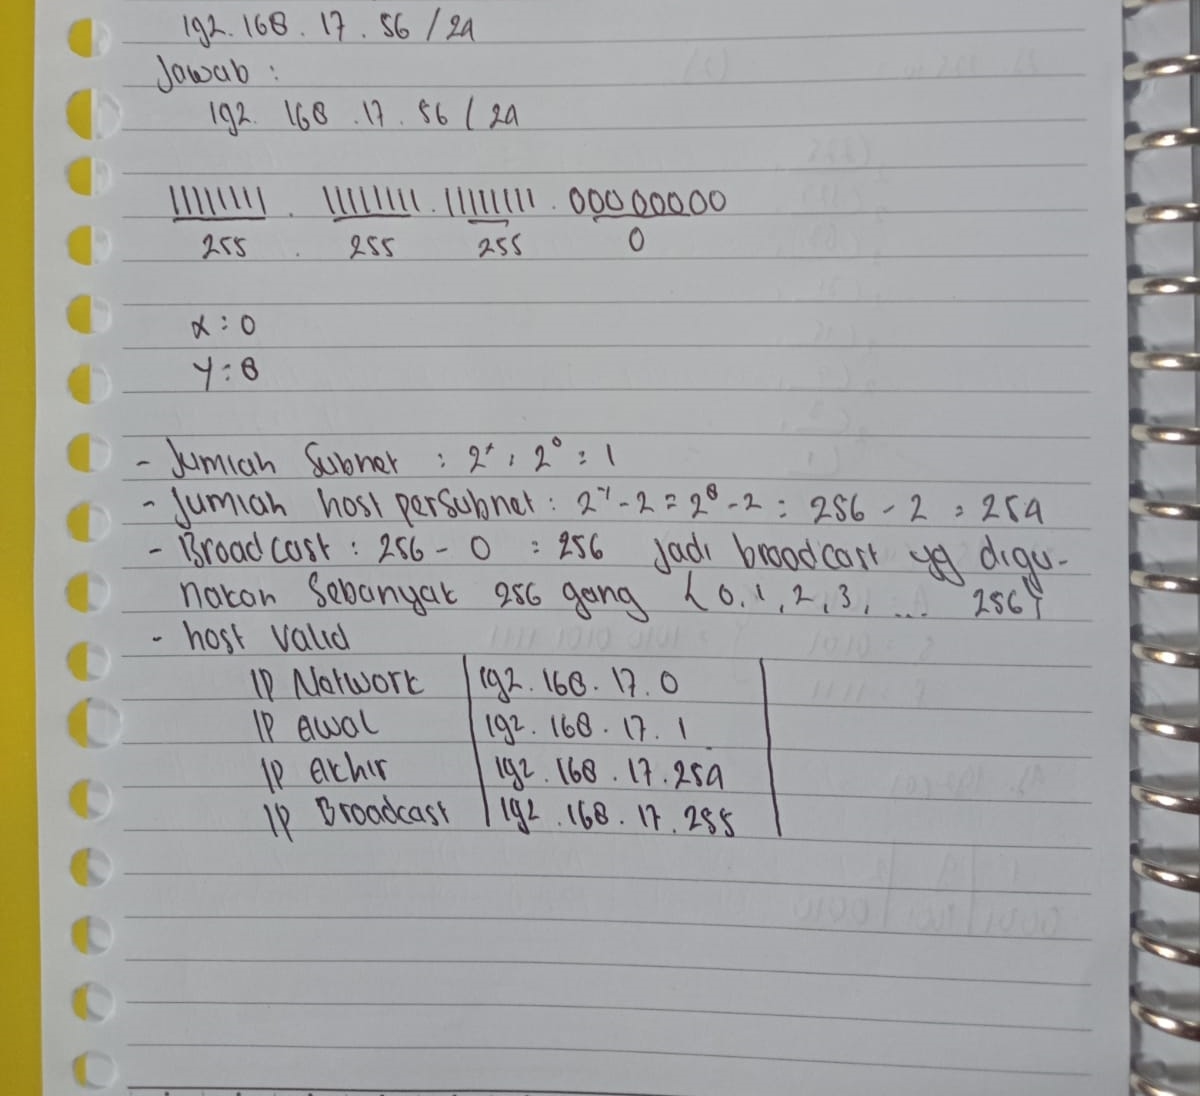 192.168.17.56 / 24
Jawab :
192.168.17.56 / 24
11111111 . 11111111 . 11111111 . 00000000
255 . 255 255 0
x : 0
y : 8
- Jumlah Subnet : 2ˣ : 2⁰ : 1
- Jumlah host persubnet : 2ʸ - 2 = 2⁸ - 2 : 256 - 2 = 254
- Broadcast : 256 - 0 : 256 Jadi broadcast yg digu-
nakan Sebanyak 256 gang { 0, 1, 2, 3, ... 256 }
- host valid
IP Network | 192.168.17.0
IP awal | 192.168.17.1
IP akhir | 192.168.17.254
IP Broadcast | 192.168.17.255